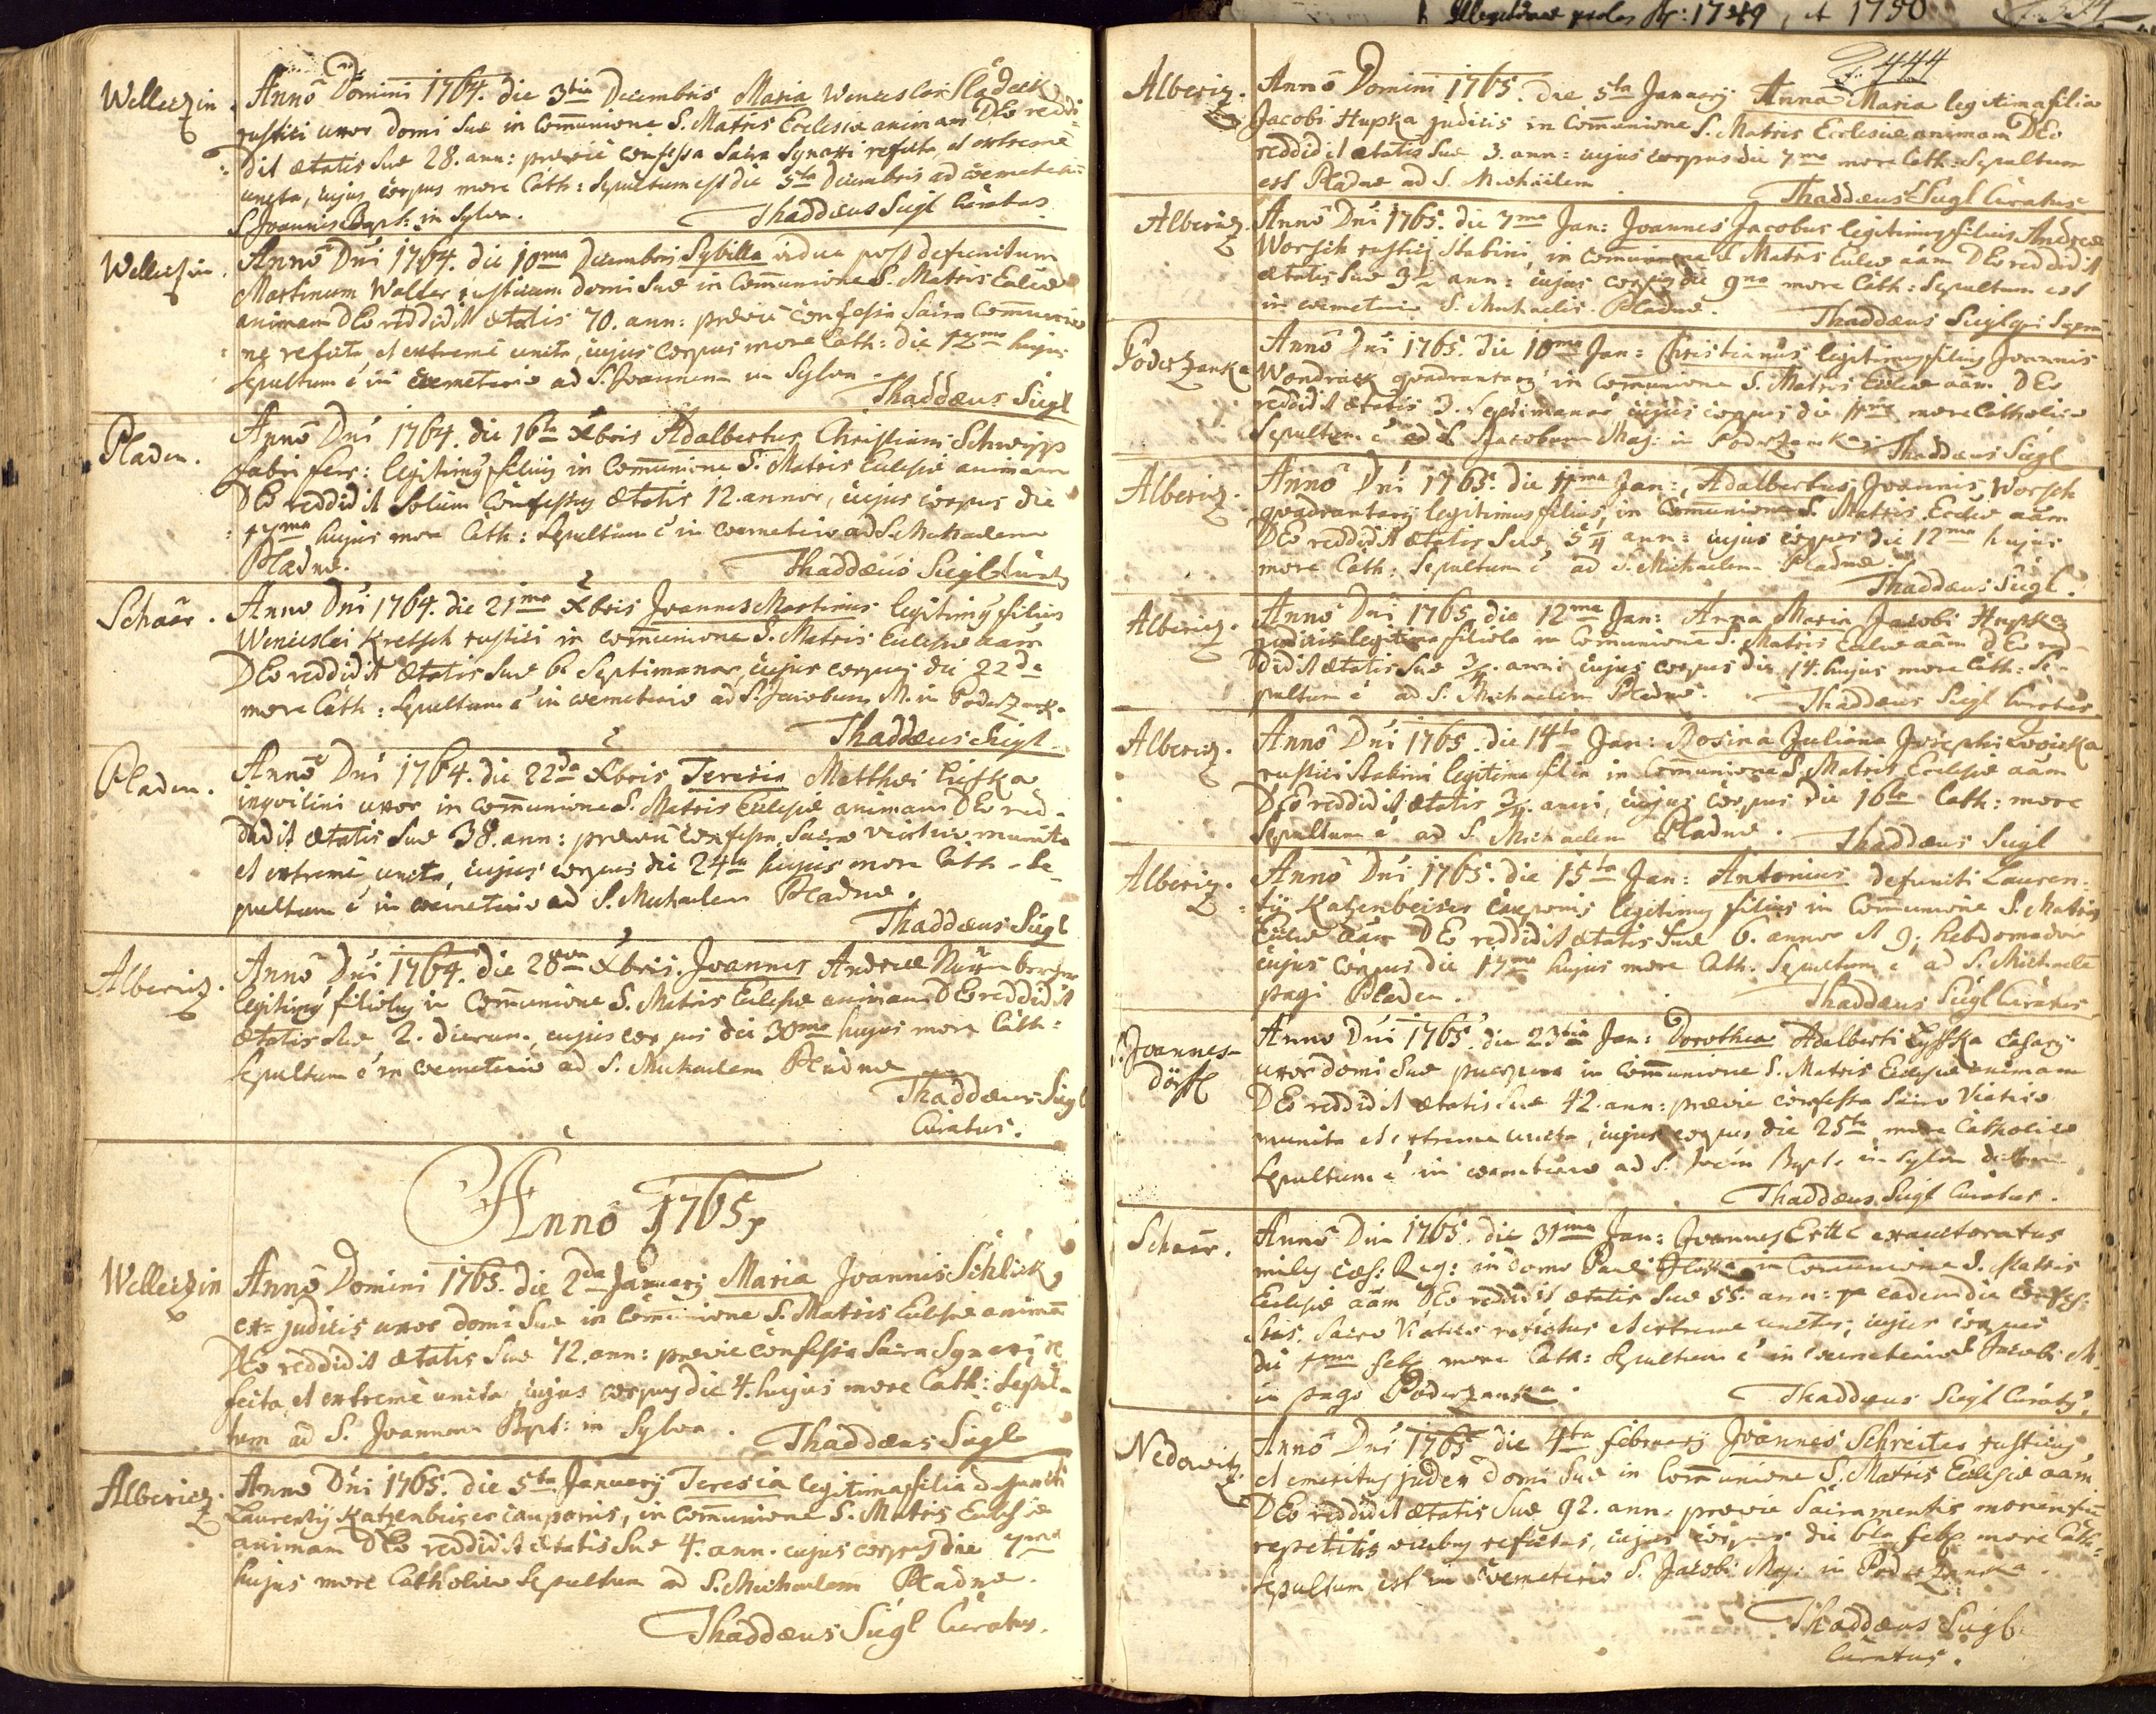 Welleczin.
Anno Domini 1764. die 3tia Decembris Maria Wenceslai Sladeck
rustici uxor domi suæ in Com̄unione S. Matris Ecclesiæ animam DEo reddi-
dit ætatis suæ 28. ann: prævie confessa Sacra Synaxi refecta, et extreme
uncta, cujus corpus more Cath: Sepultum est die 5ta Decembris ad cœmeteriū
S. Joannis Bapt: in Sylva. Thaddæus Siegl Curatus
Welleczin.
Anno Dni 1764. die 10ma Decembris Sybilla vidua post defunctum
Martinum Walder rusticum domi suæ in Com̄unione S. Matris Ecclæ
animam DEo reddidit ætatis 70. ann: prævie confessa Sacra Communio
ne refecta et extreme uncta, cujus corpus more Cath: die 12ma hujus
Sepultum e in cœmeterio ad S. Joannem in Sylva.
Thaddæus Siegl
Pladen.
Anno Dni 1764. die 16ta Xbris Adalbertus Christiani Schwipp
fabri ferr: legitimg filig in Communione S. Matris Eclesiæ animam
DEo reddidit Solum Confessg ætatis 12. annor, cujus corpus die
17ma hujus more Cath: Sepultum e in cœmeterio ad S. Michaelem
Pladnæ. Thaddæus Siegl Curatg
Schaar.
Anno Dni 1764. die 21ma Xbris Joannes Martinus legitimg filius
Wenceslai Kretsch rustici in com̄unione S. Matris Eclesiæ aām
DEo reddidit ætatis suæ 6. Septimanar, cujus corpus die 22da
more Cath: Sepultum e in cœmeterio ad S. Jacobum M. in Poderzank.
Thaddæus Siegl.
Pladen.
Anno Dni 1764. die 22da Xbris Teresia Matthæi Liſka
inqvilini uxor in com̄unione S. Matris Eclesiæ animam DEo red-
didit ætatis Suæ 38. ann: prævie confessa Sacro viatico munita
et extreme uncta, cujus corpus die 24ta hujus more Cath. Se-
pultum e in cœmeterio ad S. Michaelem Pladnæ.
Thaddæus Siegl
Alberiz.
Anno Dni 1764. die 28va Xbris. Joannes Andreæ Nürnberger
legitimg filiolg in Communione S. Matris Eclesiæ animam DEo reddidit
ætatis suæ 2. dierum, cujus corpus die 30ma hujus more Cath:
Sepultum e in cœmeterio ad S. Michaelem Pladnæ
Thaddæus Siegl
Curatus.
Anno 1765,
Welleczin
Anno Domini 1765. die 2da Januarij Maria Joannis Schlick
ex-judicis uxor domi Suæ in Com̄unione S. Matris Eclesiæ animā
DEo reddidit ætatis Suæ 72. ann: prævie confessa Sacra Synaxi re
fecta, et extreme uncta, cujus corpus die 4. hujus more Cath: Sepul-
tum ad S. Joannem Bapt: in Sylva. Thaddæus Siegl
Alberiez.
Anno Dni 1765. die 5ta Januarij Teresia legitima filia defuncti
Laurentij Katzenbeiser cauponis, in com̄unione S. Matris Eclesiæ
animam DEo reddidit ætatis suæ 4. ann. cujus corpus die 7ma
hujus more Catholico Sepultum ad S. Michaelem Pladnæ.
Thaddæus Siegl Curatus.
Illegitimæ proles Ao: 1749, et 1750
F. 444
Alberiz.
Anno Domini 1765. die 5ta Januarij Anna Maria legitima filia
Jacobi Hupka judicis in Com̄unione S. Matris Ecclesiæ animam DEo
reddidit ætatis suæ 3. ann: cujus corpus die 7ma more Cath: Sepultum
est Pladnæ ad S. Michaelem Thaddæus Siegl Curatus
Alberiz.
Anno Dni 1765. die 7ma Jan: Joannes Jacobus legitimg filius Andreæ
Worsch rustici Stabini, in Com̄unione S. Matris Ecclæ aām DEo reddidit
ætatis suæ 3 ann: cujus corpus die 9na more Cath: Sepultum est
in cœmeterio S. Michaelis Pladnæ. Thaddæus Siegl qui Supra
Poderzanka
Anno Dni 1765. die 10ma Jan: Christianus legitimg filig Joannis
Wondrack qvadrantarij in Communione S. Matris Ecclæ aām DEo
reddidit ætatis 3. Septimanar cujus corpus die 11ma more Catholico
Sepultum e ad S. Jacobum Maj: in Poderzanka. Thaddæus Siegl
Alberiz.
Anno Dni 1765. die 11ma Jan:, Adalbertus Joannis Worsch
qvadrantarij legitimus filius, in Com̄unione S. Matris Ecclæ aām
DEo reddidit ætatis Suæ 5/4 ann: cujus corpus die 12ma hujus
more Cath: Sepultum e ad S. Michaelem Pladnæ.
Thaddæus Siegl.
Alberiz.
Anno Dni 1765. die 12ma Jan: Anna Maria Jacobi Hupka
judicis legitima filiola in Communione S. Matris Ecclæ aām DEo red-
didit ætatis suæ 3/4. anni cujus corpus die 14. hujus more Cath: Se-
pultum e ad S. Michaelem Pladnæ. Thaddæus Siegl Curatus
Alberiz.
Anno Dni 1765. die 14ta Jan: Rosina Juliana Josephi
rustici Stabini legitima filia in Communione S. Matris Ecclesiæ aām
DEo reddidit ætatis 3/4. anni, cujus corpus die 16ta Cath: more
Sepultum e ad S. Michaelem Pladnæ. Thaddæus Siegl
Alberiz.
Anno Dni 1765. die 15ta Jan: Antonius defuncti Lauren-
tij Katzenbeiser cauponis legitimg filius in Com̄unione S. Matris
Ecclæ aām DEo reddidit ætatis suæ 6. annor et 9. hebdomadar
cujus corpus die 17ma hujus more Cath. Sepultum e ad S. Michaelē
pagi Pladen. Thaddæus Siegl Curatus
S. Joannes-
dörffl
Anno Dni 1765. die 23tia Jan: Dorothea Adalberti Lyſka casarij
uxor domi suæ puerpera in Com̄unione S. Matris Ecclesiæ animam
DEo reddidit ætatis suæ 42. ann: prævie confessa Sacro Viatico
munita et extreme uncta, cujus corpus die 25ta more Catholico
Sepultum e in cœmeterio ad S. Joan Bapt. in Sylva
Thaddæus Siegl Curatus.
Schaar.
Anno Dni 1765. die 31ma Jan: Joannes Ertl exauctoratus
miles cæs: Reg: in domo Pauli in Communione S. Matris
Ecclesiæ aām DEo reddidit ætatis suæ 55. ann: eadem die confes-
sus, Sacro Viatico refectus et extreme unctus, cujus corpus
die 1ma feb more Cath: Sepultum e in cœmeterio S. Jacobi M.
in pago Poderzanka. Thaddæus Siegl Curatg.
Nedowitz.
Anno Dni 1765 die 4ta februarij Joannes Schreiter rusticus,
et emeritus judex domi suæ in Com̄unione S. Matris Ecclesiæ aām
DEo reddidit ætatis suæ 92. ann. prævie Sacramentis morientiū
repetitis vicibg refectus, cujus corpus die 6ta feb more Cath:
Sepultum est in cœmeterio S. Jacobi Maj: in Poderzanka.
Thaddæus Siegl
Curatus.